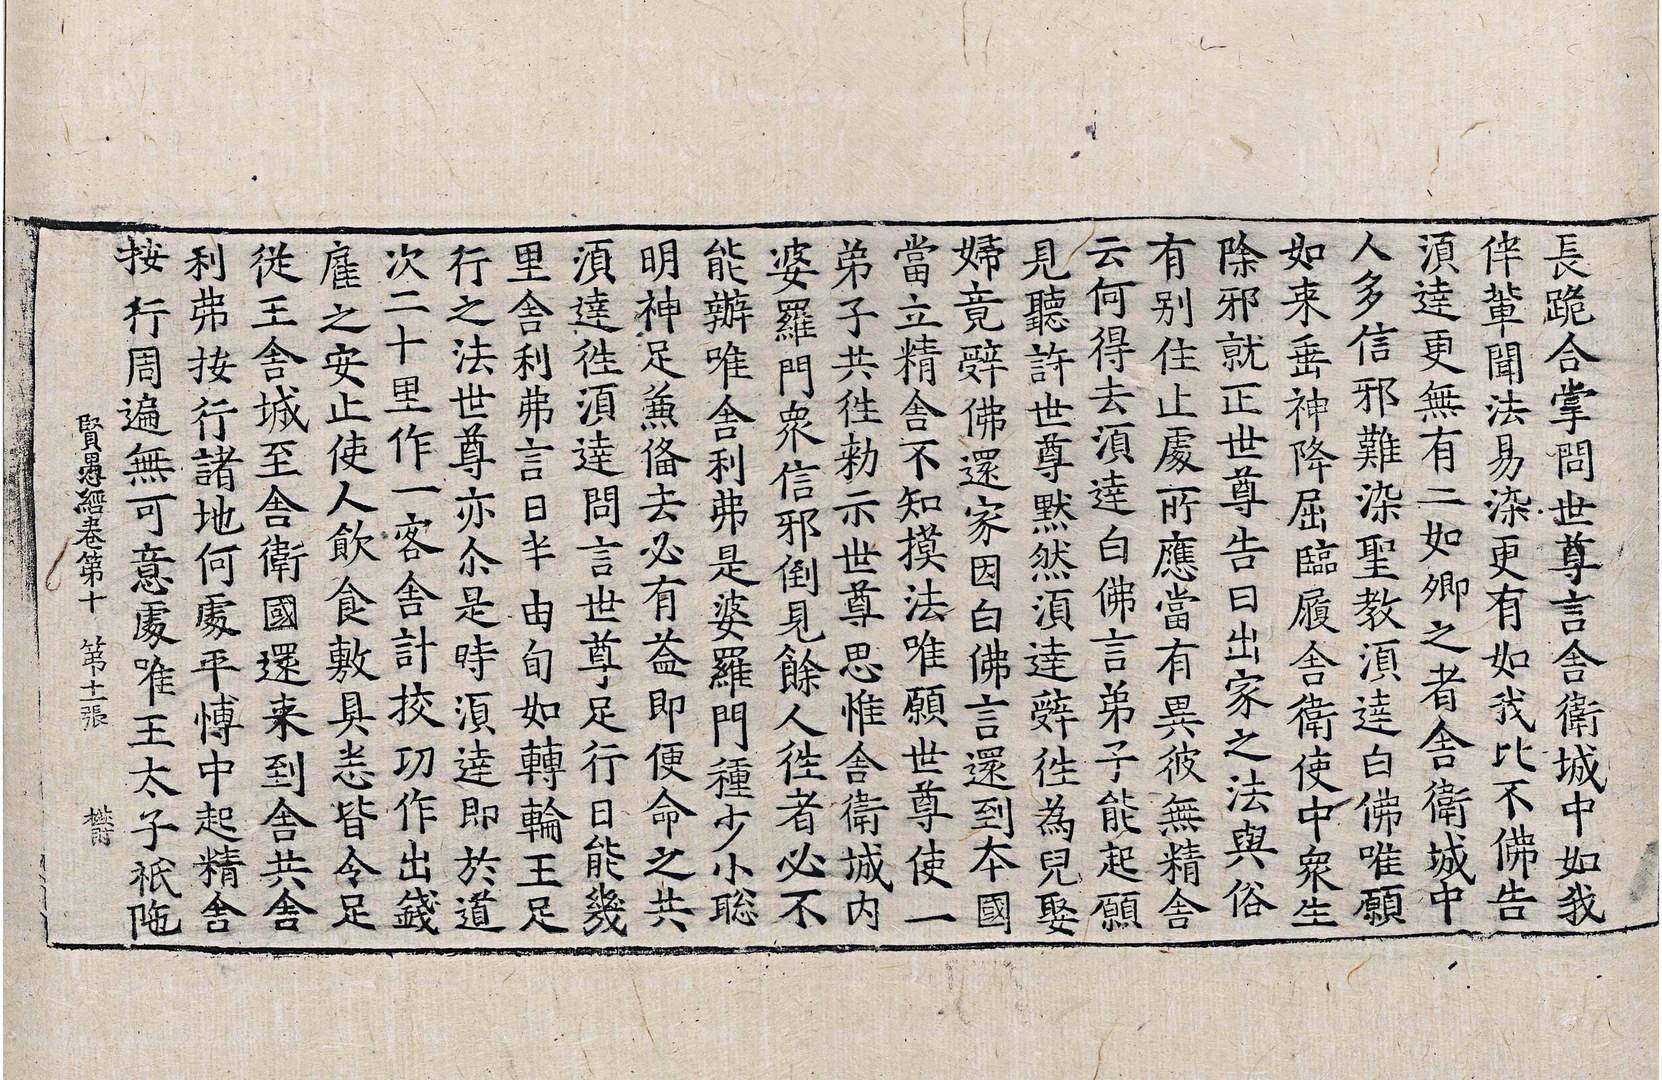 長跪合掌問世尊言舍衛城中如我
伴軰聞法易染更有如我比不佛告
湏逹更無有二如卿之者舍衛城中
人多信邪難染聖教湏逹白佛唯願
如来垂神降屈臨履舍衛使中衆生
除邪就正世尊告曰出家之法與俗
有别住止處所應當有異彼無精舍
云何得去湏逹白佛言弟子能起願
見聽許世尊默然湏逹辤徃為兒娶
婦竟辤佛還家因白佛言還到夲國
當立精舍不知摸法唯願世尊使一
弟子共徃勑示世尊思惟舍衛城内
婆羅門衆信邪倒見餘人徃者必不
能辦唯舍利弗是婆羅門種少小聡
明神足兼俻去必有益即便命之共
湏逹徃湏逹問言世尊足行日能幾
里舍利弗言日半由旬如轉輪王足
行之法世尊亦尒是時湏逹即於道
次二十里作一客舍計挍功作出錢
雇之安止使人飲食敷具悉皆令足
從王舍城至舍衛國還来到舍共舍
利弗按行諸地何處平愽中起精舍
按行周遍無可意處唯王太子祇陁
賢愚經卷第十 第十一張